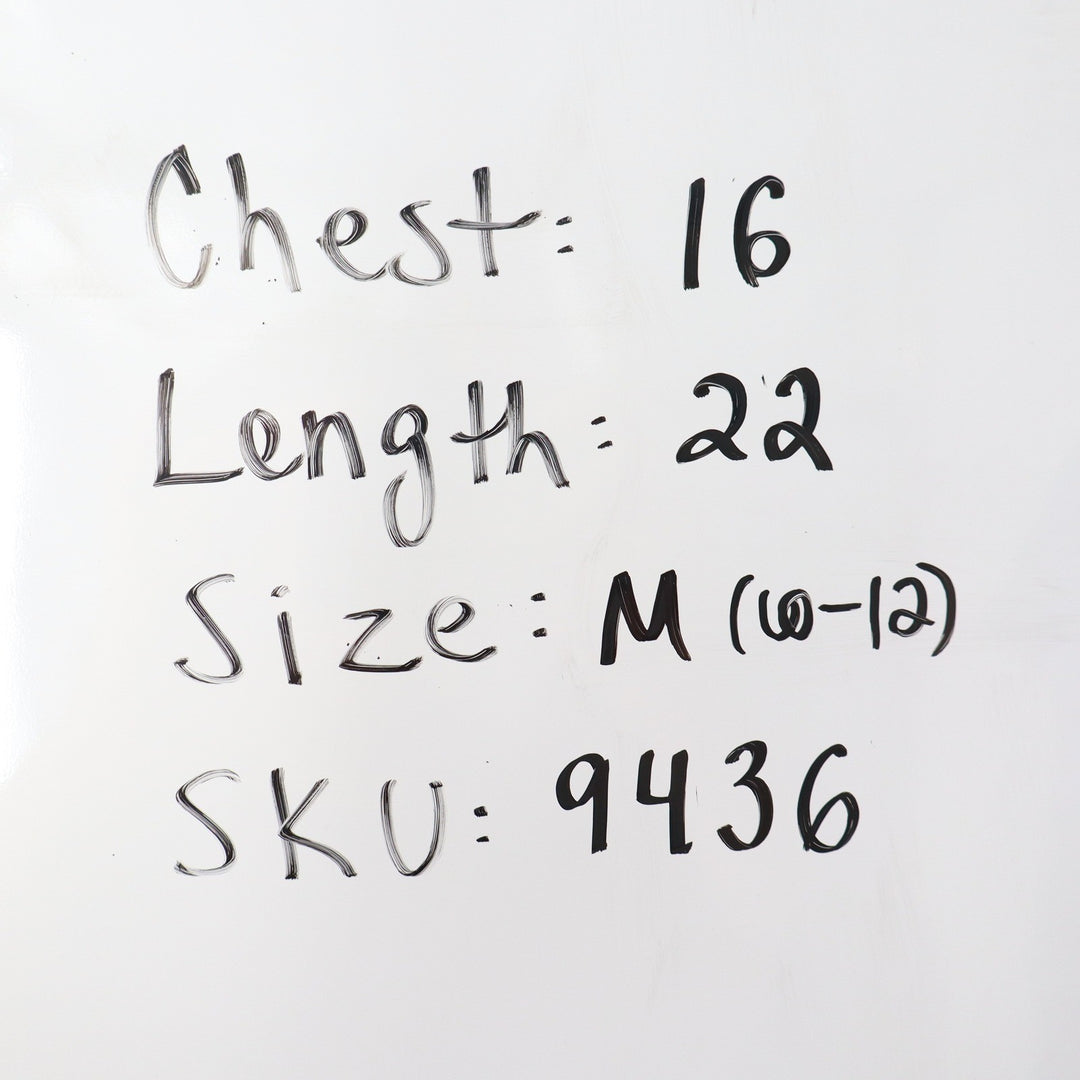 Chest: 16
Length: 22
Size: M (10-12)
SKU: 9436